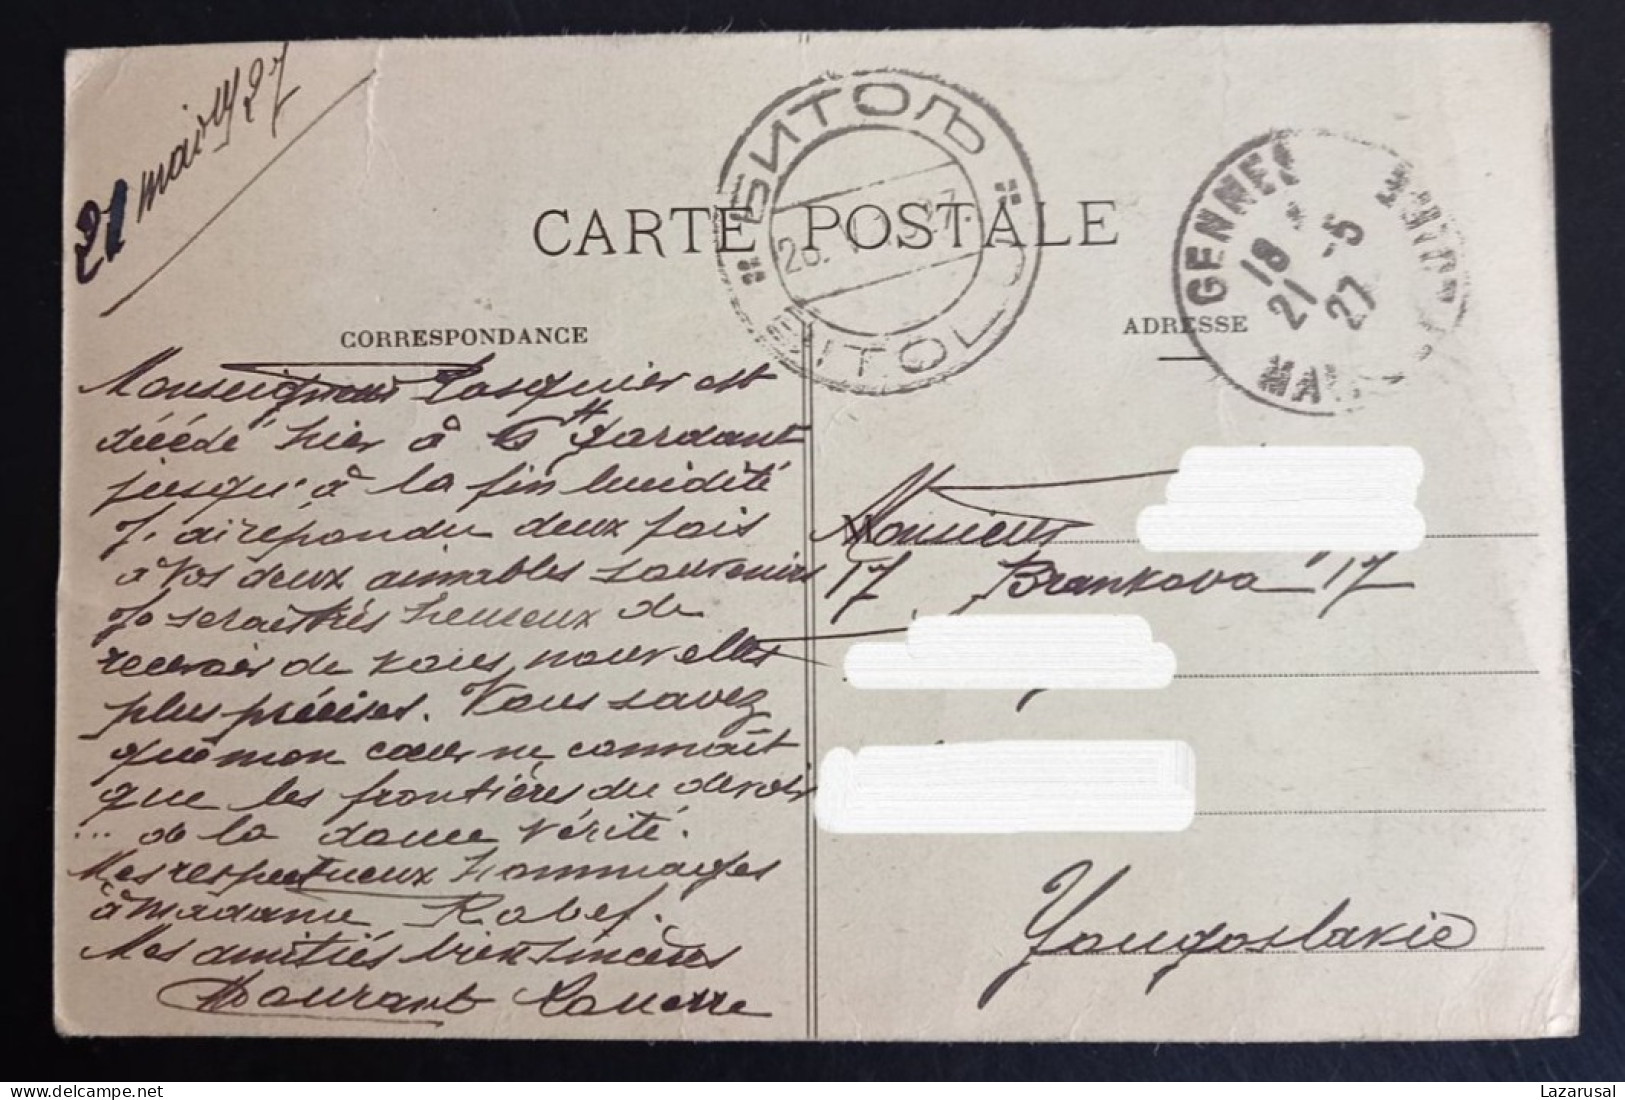 21 mai 1927
CARTE POSTALE
БИТОЉ
BITOLJ
GENNES
18
21 -5
27
CORRESPONDANCE
ADRESSE
Monseigneur Pasquier est
décédé hier à gardant
jusqu'à la fin lucidité
J'ai répondu deux fois
à vos deux aimables souvenirs
Je serais très heureux de
recevoir de vous, nouvelles
plus précises. Vous savez
que mon cœur ne connaît
que les frontières du devoir
... de la vérité.
Mes respectueux hommages
à Madame
Mes amitiés bien sincères
Monsieur
17 Brankova 17
Yougoslavie
Lazarusal